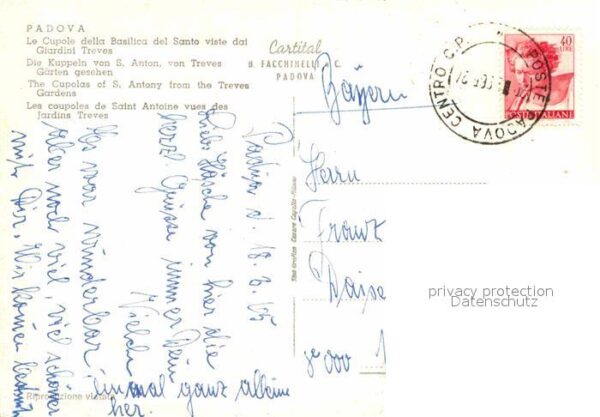 PADOVA
Le Cupole della Basilica del Santo viste dai
Giardini Treves
Die Kuppeln von S. Anton, von Treves
Gärten gesehen
The Cupolas of S. Antony from the Treves
Gardens
Les coupoles de Saint Antoine vues des
Jardins Treves
Cartital
B. FACCHINELLI C.
PADOVA
40
LIRE
POSTE ITALIANE
POSTE PADOVA CENTRO C.P.
Bayern
Herrn
Franz
Padua d. 18.3.65
von hier die
herzl Grüsse immer Dein
Es war wunderbar,
aber noch viel, viel schöner
mit Dir. Wir können
einmal ganz alleine
her.
Riproduzione vietata
privacy protection
Datenschutz